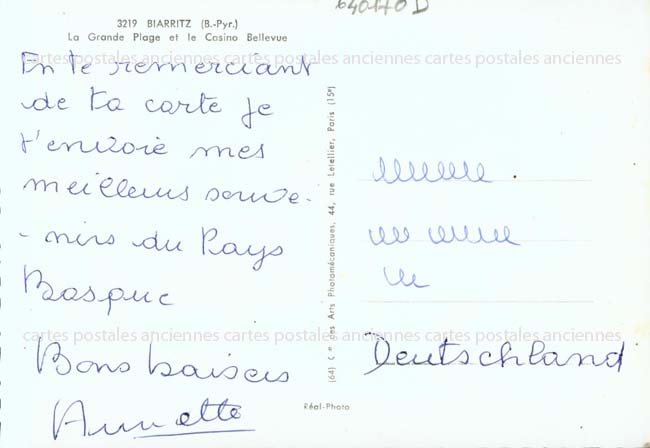 640170D
3219 BIARRITZ (B.-Pyr.)
La Grande Plage et le Casino Bellevue
cartes postales anciennes cartes postales anciennes cartes postales anciennes
En te remerciant
de ta carte je
t'envoie mes
meilleurs souve-
-nirs du Pays
Basque
cartes postales anciennes cartes postales anciennes cartes postales anciennes
Bons baisers
Annette
(64) Cie des Arts Photomécaniques, 44, rue Letellier, Paris (15e)
Deutschland
Réal-Photo